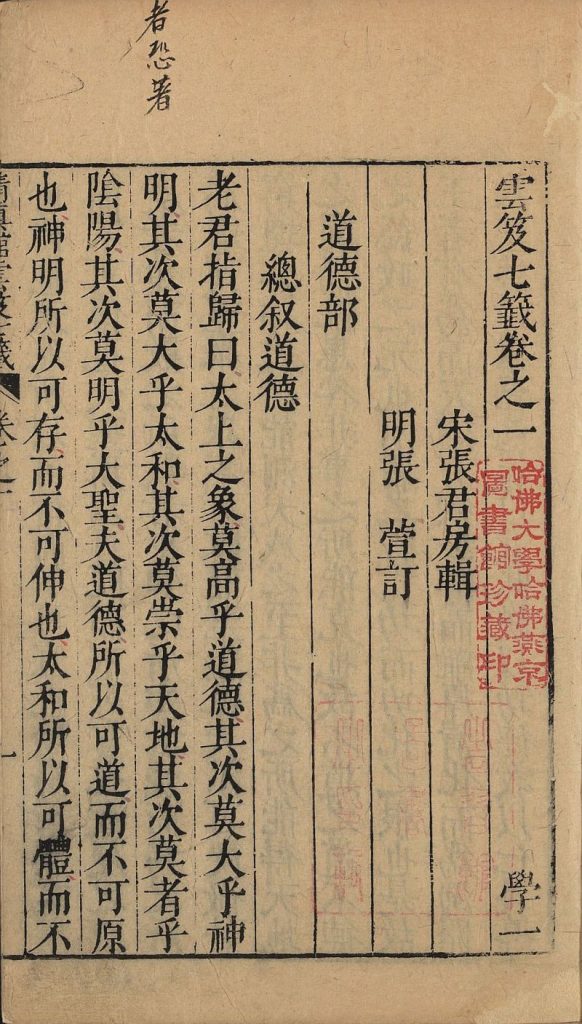 者恐著
雲笈七籖卷之一
學一
宋張君房輯
明張萱訂
道德部
總叙道德
老君指歸曰太上之象莫高乎道德其次莫大乎神
明其次莫大乎太和其次莫崇乎天地其次莫者乎
陰陽其次莫明乎大聖夫道德所以可道而不可原
也神明所以可存而不可伸也太和所以可體而不
清真館雲笈七籖
卷之一
一
哈佛大學哈佛燕京
圖書館珍藏印